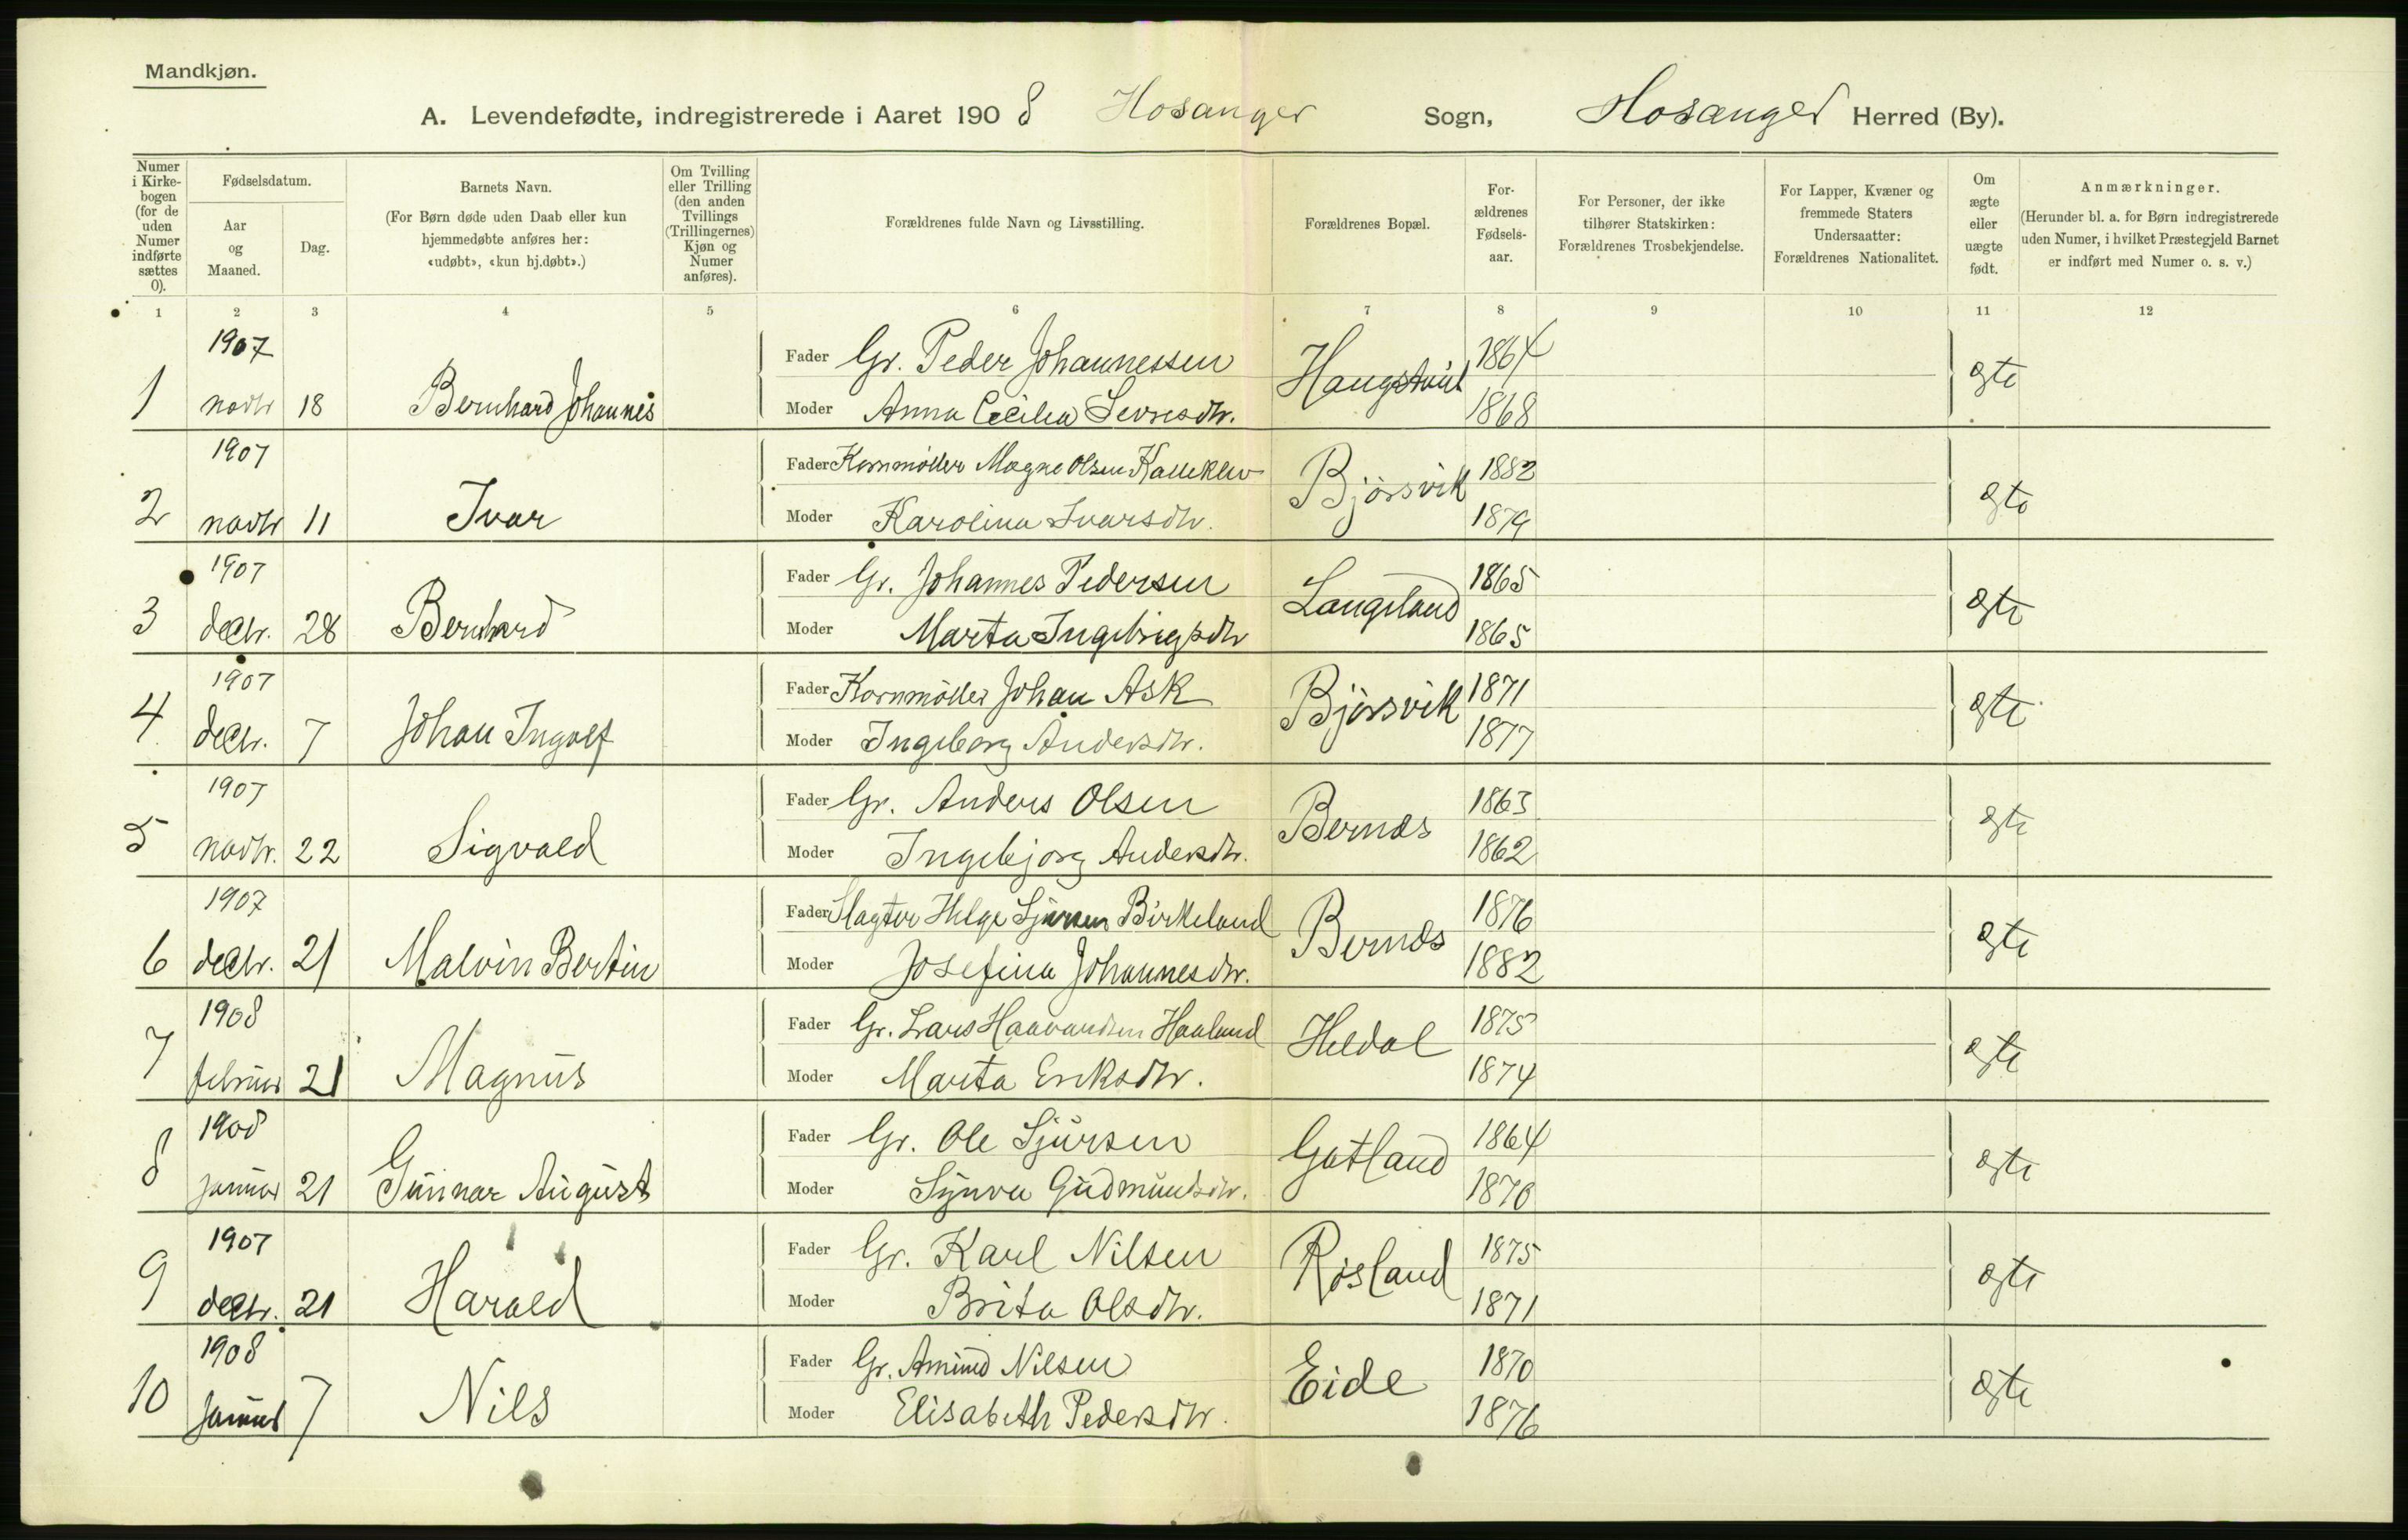 Mandkjøn.
A. Levendefødte, indregistrerede i Aaret 1908 Hosanger Sogn, Hosanger Herred (By).
Numer i Kirke-bogen (for de uden Numer indførte sættes 0).
Fødselsdatum.
Aar og Maaned.
Dag.
Barnets Navn.
(For Børn døde uden Daab eller kun hjemmedøbte anføres her: «udøbt», «kun hj.døbt».)
Om Tvilling eller Trilling (den anden Tvillings (Trillingernes) Kjøn og Numer anføres).
Forældrenes fulde Navn og Livsstilling.
Forældrenes Bopæl.
For-ældrenes Fødsels-aar.
For Personer, der ikke tilhører Statskirken: Forældrenes Trosbekjendelse.
For Lapper, Kvæner og fremmede Staters Undersaatter: Forældrenes Nationalitet.
Om ægte eller uægte født.
Anmærkninger.
(Herunder bl. a. for Børn indregistrerede uden Numer, i hvilket Præstegjeld Barnet er indført med Numer o. s. v.)
1 2 3 4 5 6 7 8 9 10 11 12
1907 Fader Gr. Peder Johannessen 1864
1 novbr 18 Bernhard Johannes Moder Anna Cecilia 1868 ægte
1907 Fader Kornmöller Magne Olsen Kalleklev Bjørsvik 1882
2 novbr 11 Ivar Moder Karolina Ivarsdtr. 1879 ægte
1907 Fader Gr. Johannes Pedersen Langeland 1865
3 decbr. 28 Bernhard Moder Marta Ingebrigtsdtr 1865 ægte
1907 Fader Kornmöller Johan Ask Bjørsvik 1871
4 decbr. 7 Johan Ingolf Moder Ingeborg Andersdtr. 1877 ægte
1907 Fader Gr. Anders Olsen Bernæs 1863
5 novbr. 22 Sigvald Moder Ingebjorg Andersdtr. 1862 ægte
1907 Fader Slagter Helge Sjursen Birkeland Bernæs 1876
6 decbr. 21 Malvin Bertin Moder Josefina Johannesdtr. 1882 ægte
1908 Fader Gr. Lars Haavardsen Haaland Heldal 1875
7 februar 21 Magnus Moder Marta Eriksdtr. 1874 ægte
1908 Fader Gr. Ole Sjursen Gatland 1864
8 januar 21 Gunnar August Moder Synva Gudmundsdtr. 1870 ægte
1907 Fader Gr. Karl Nilsen Røsland 1875
9 decbr. 21 Harald Moder Brita Olsdtr. 1871 ægte
1908 Fader Gr. Amund Nilsen Eide 1870
10 januar 7 Nils Moder Elisabeth Pedersdtr. 1876 ægte